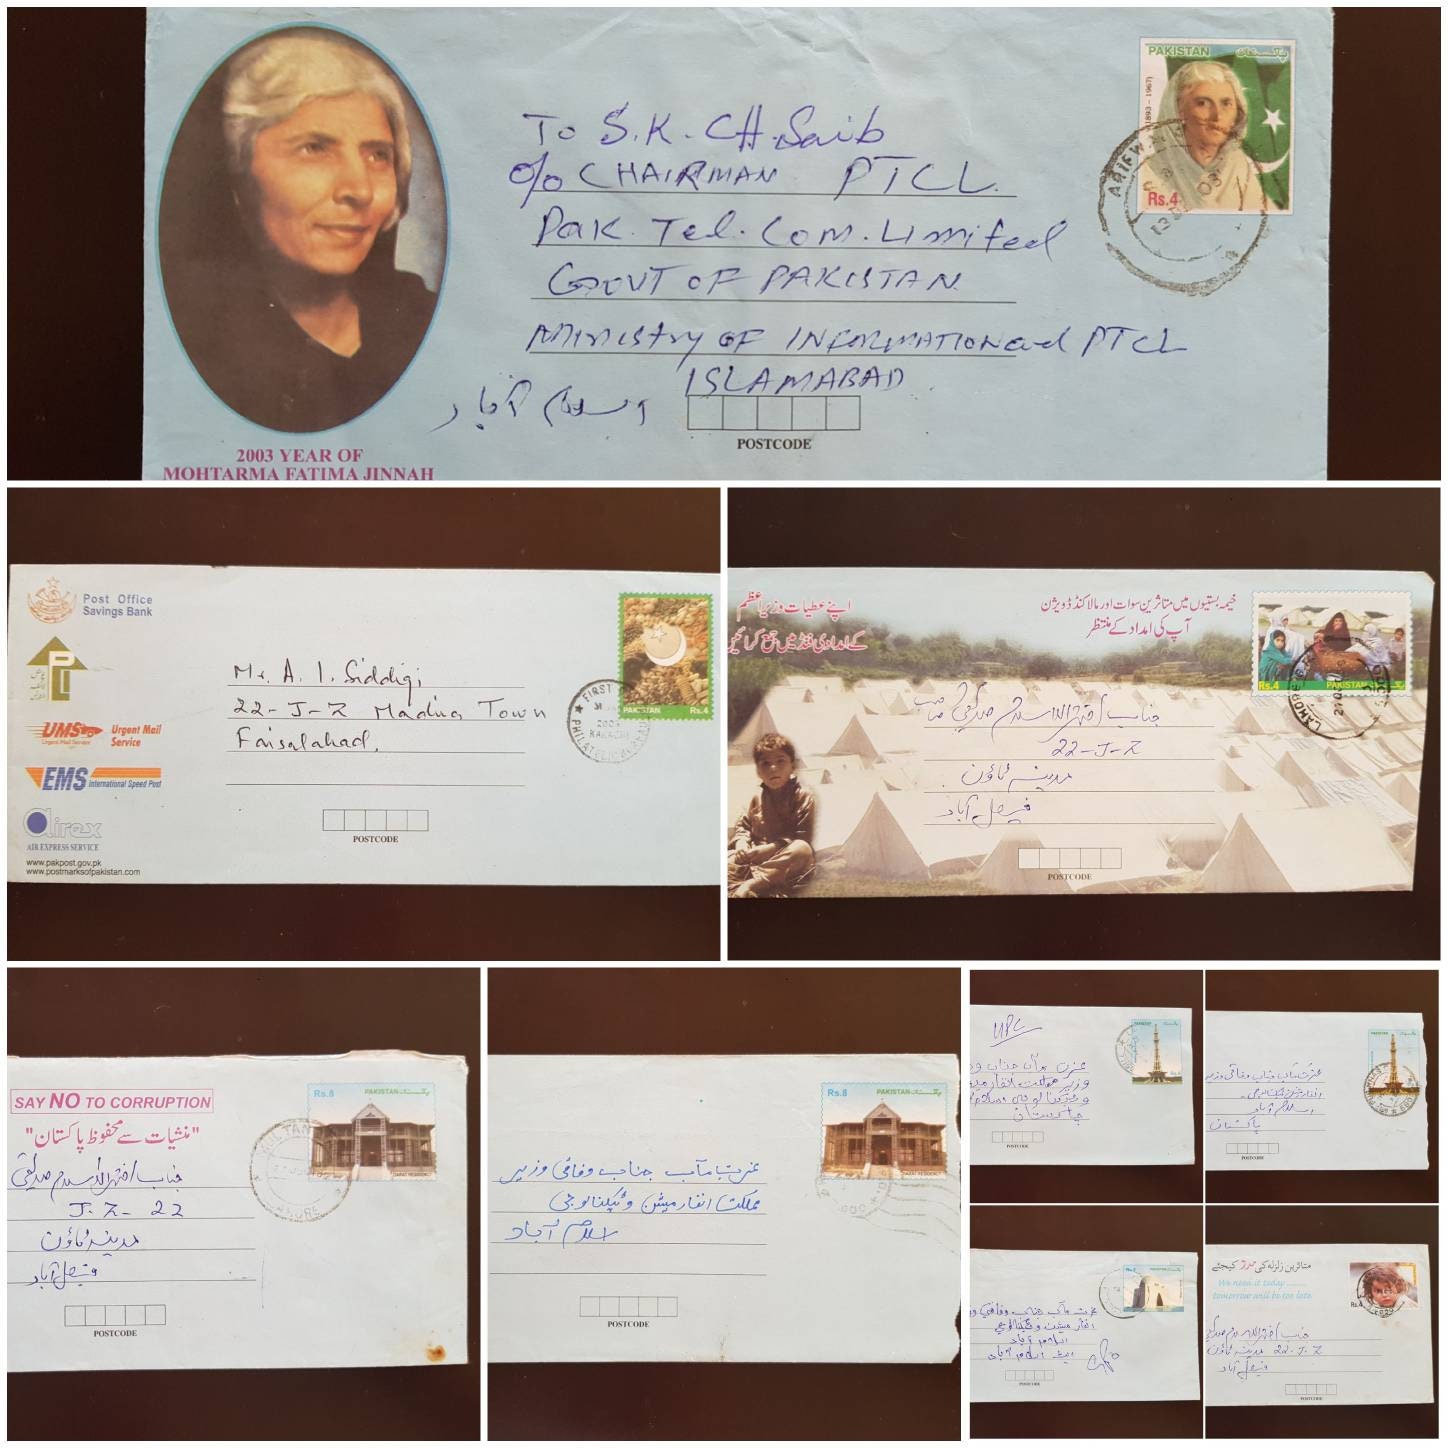 To S.K. CH. Saib
c/o CHAIRMAN PTCL.
Pak. Tel. Com. Limited
GOVT OF PAKISTAN.
MINISTRY OF INFORMATION and PTCL
ISLAMABAD
POSTCODE
2003 YEAR OF
MOHTARMA FATIMA JINNAH
PAKISTAN پاکستان
(1893 – 1967)
Rs.4
ARIFW
Post Office
Savings Bank
PLI
UMS Urgent Mail Service
Urgent Mail
Service
EMS International Speed Post
airex
AIR EXPRESS SERVICE
www.pakpost.gov.pk
www.postmarksofpakistan.com
Mr. A. I. Siddiqi
22-J-Z Madina Town
Faisalabad,
POSTCODE
PAKISTAN Rs.4
FIRST
KARACHI
اپنے عطیات وزیر اعظم
کے امدادی فنڈ میں جمع کرائیں
خیمہ بستیوں میں متاثرین سوات اور مالاکنڈ ڈویژن
آپ کی امداد کے منتظر
Rs.4 PAKISTAN
LAHORE
22-J-Z
مدینہ ٹاؤن
فیصل آباد
POSTCODE
SAY NO TO CORRUPTION
"منشیات سے محفوظ پاکستان"
J-Z-22
مدینہ ٹاؤن
فیصل آباد
POSTCODE
Rs.8 PAKISTAN پاکستان
ZIARAT RESIDENCY
عزت مآب جناب وفاقی وزیر
مملکت انفارمیشن و ٹیکنالوجی
اسلام آباد
POSTCODE
Rs.8 PAKISTAN پاکستان
ZIARAT RESIDENCY
UPC
عزت مآب جناب
پاکستان
POSTCODE
PAKISTAN
عزت مآب جناب وفاقی وزیر
اسلام آباد
پاکستان
POSTCODE
PAKISTAN
عزت مآب جناب وفاقی
اسلام آباد
POSTCODE
متاثرین زلزلہ کی مدد کیجئے
We need it today ........
tomorrow will be too late.
Rs.4
مدینہ ٹاؤن 22-J-Z
فیصل آباد
POSTCODE